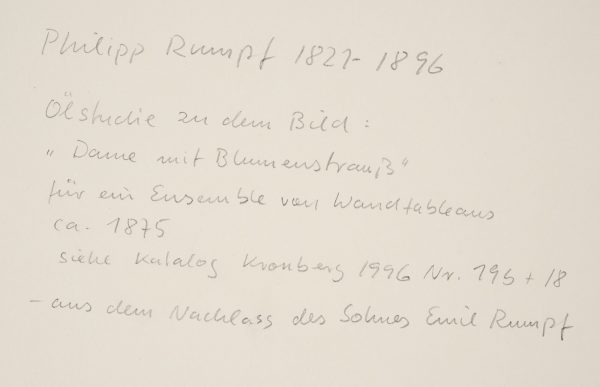 Philipp Rumpf 1821-1896
Ölstudie zu dem Bild:
„Dame mit Blumenstrauß“
für ein Ensemble von Wandtableaus
ca. 1875
siehe Katalog Kronberg 1996 Nr. 195 + 18
- aus dem Nachlass des Sohnes Emil Rumpf